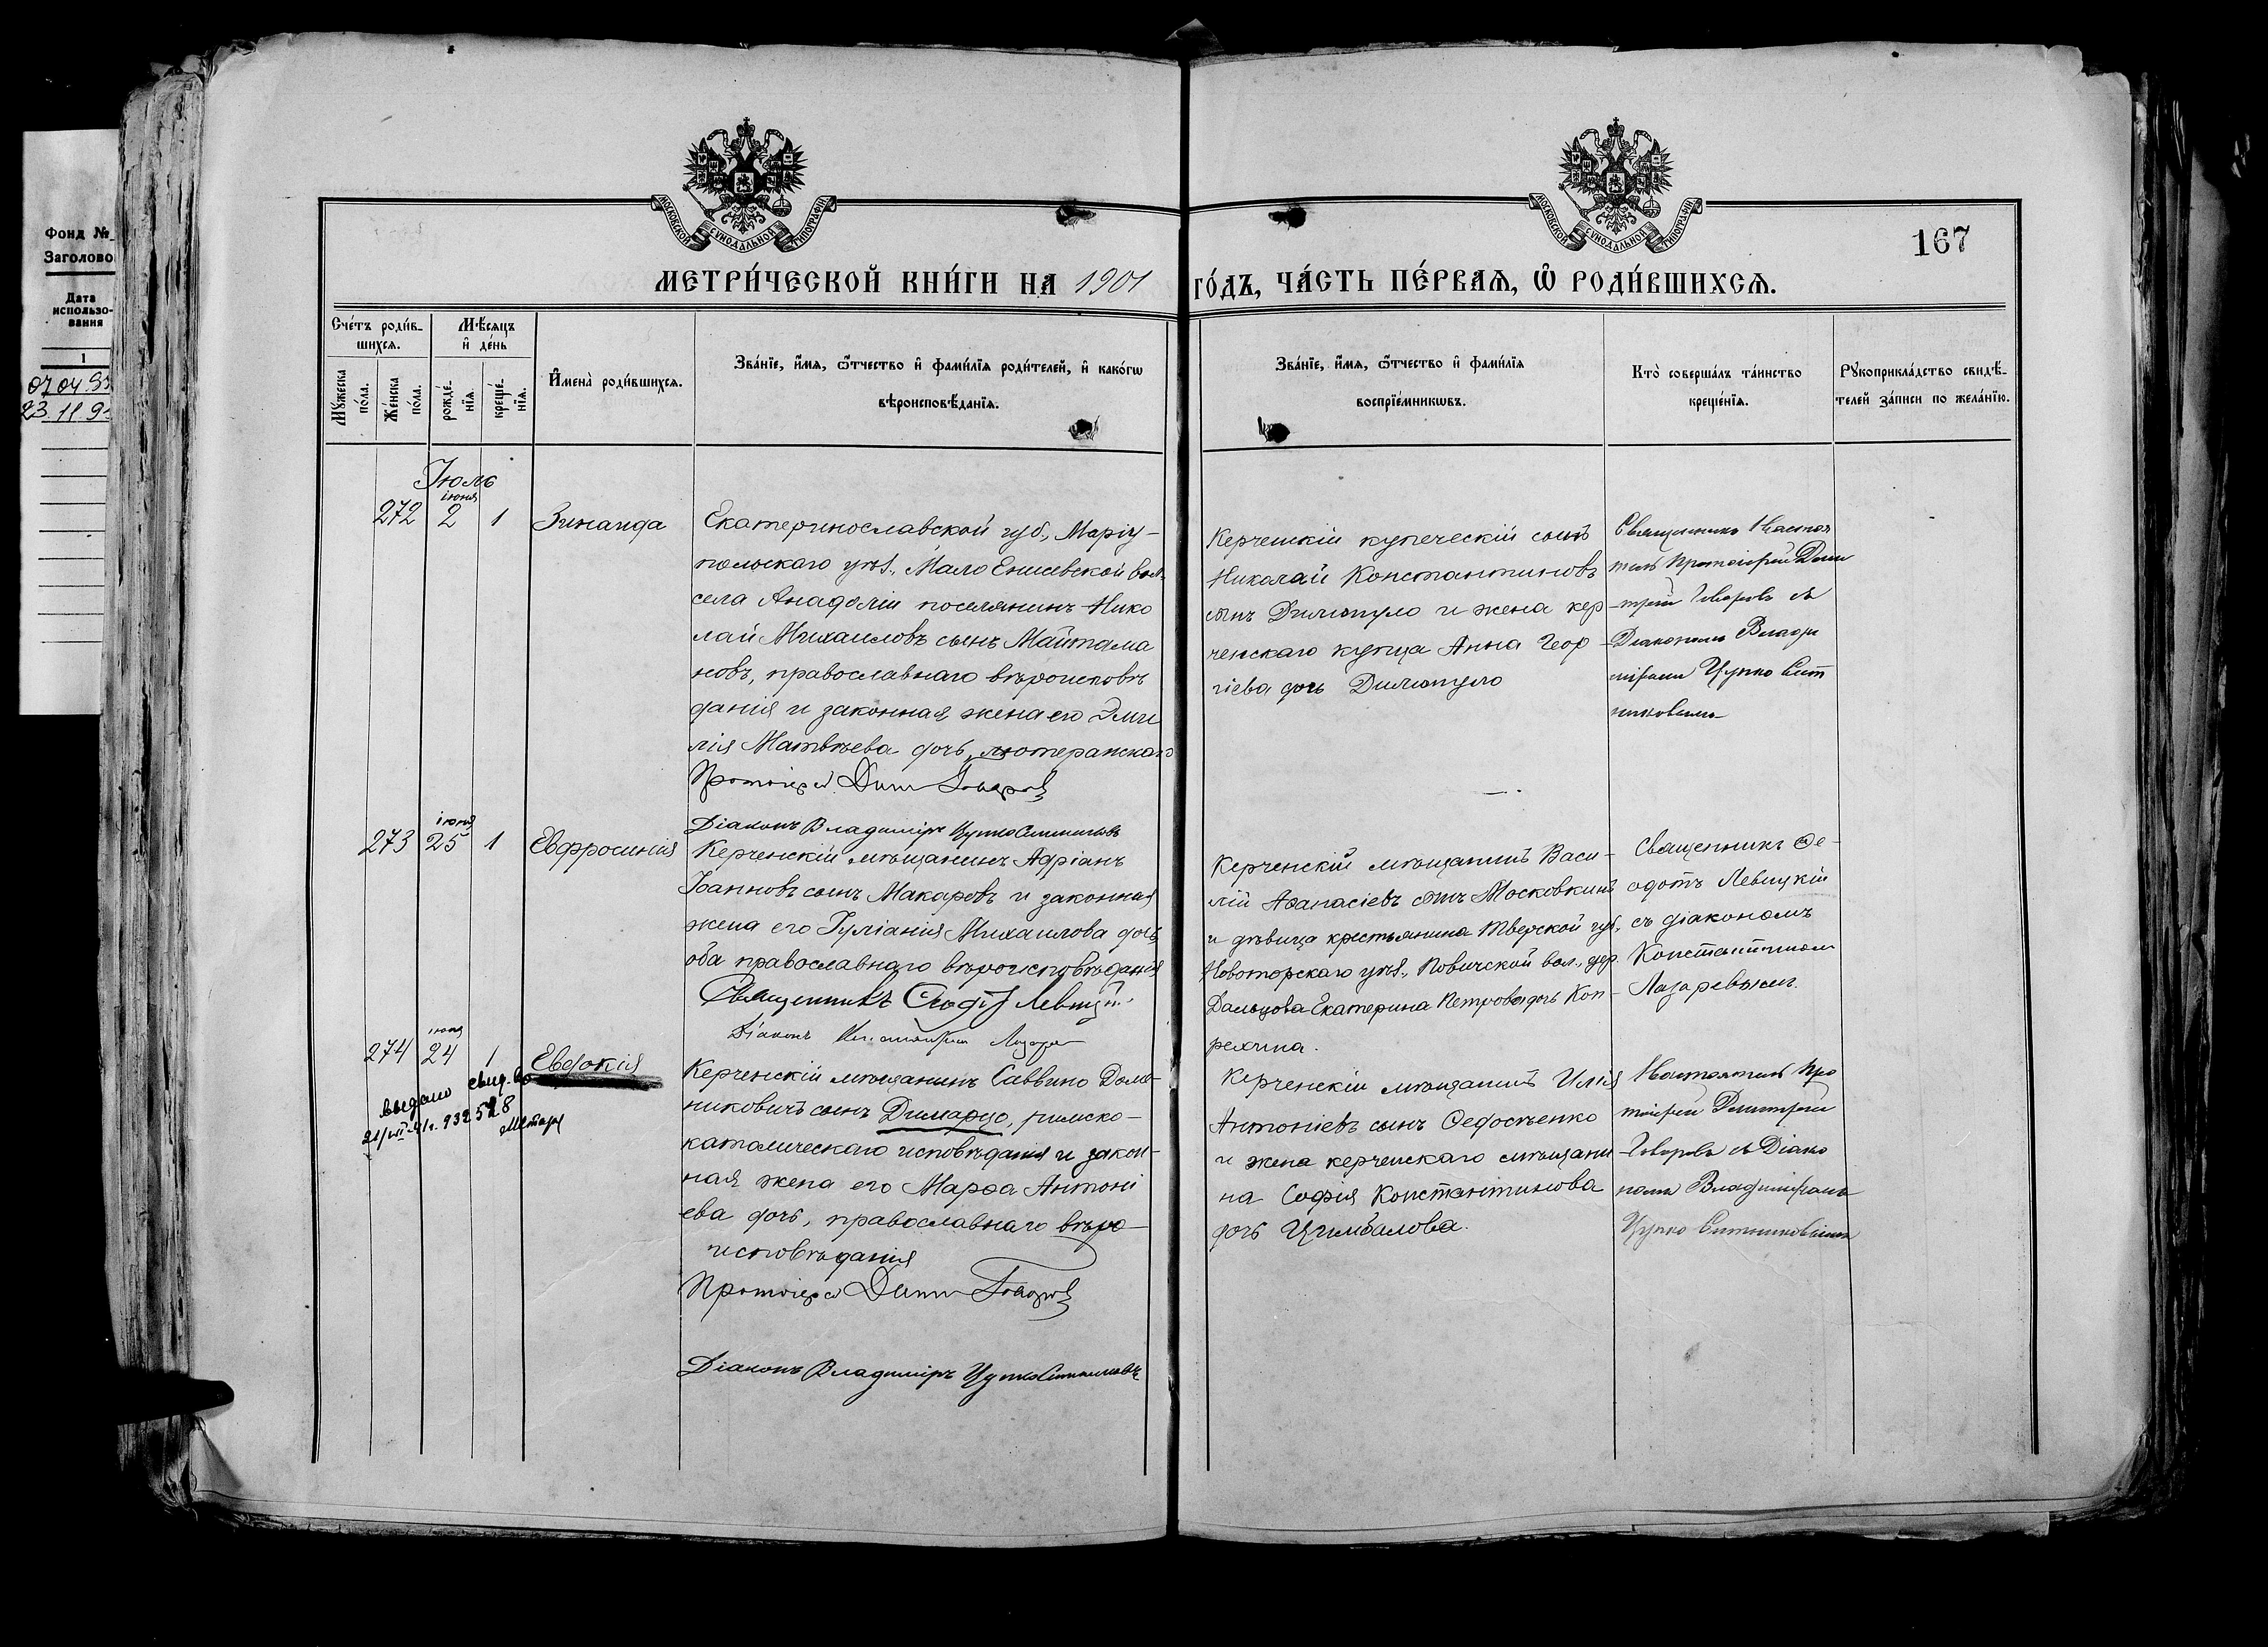 Фонд №
Заголово
Дата
использо-
вания
1
07 04 93
23.11.9
МОСКОВСКОЙ СѴНОДАЛЬНОЙ ТИПОГРАФІИ
МОСКОВСКОЙ СѴНОДАЛЬНОЙ ТИПОГРАФІИ
167
МЕТРИ́ЧЕСКОЙ КНИ́ГИ НА 1901 ГО́ДЪ, ЧА́СТЬ ПЕ́РВАѦ, Ѡ РОДИ́ВШИХСѦ.
Сче́тъ роди́в-
шихсѧ.
Му́жеска
по́ла.
Же́нска
по́ла.
Мѣ́сѧцъ
и҆ де́нь
рожде́-
нїѧ.
креще́-
нїѧ.
И҆мена̀ роди́вшихсѧ.
Зва́нїе, и҆́мѧ, ѻ҆́тчество и҆ фами́лїѧ роди́телей, и҆ како́гѡ
вѣроисповѣ́данїѧ.
Зва́нїе, и҆́мѧ, ѻ҆́тчество и҆ фами́лїѧ
воспрїе́мникѡвъ.
Кто̀ соверша́лъ та́инство
креще́нїѧ.
Рꙋкоприкла́дство свидѣ́-
телей за́писи по жела́нїю.
Іюль
272 іюня 2 1 Зинаида
Екатеринославской губ., Маріу-
польскаго уѣз., Мало Енисевской вол.
села Анадоліи поселянинъ Нико
лай Михаиловъ сынъ Майтама
новъ, православнаго вѣроисповѣ
данія и законная жена его Эми
лія Матвѣева дочь, лютеранскаго
Протоіерей Дим Говоровъ
Діаконъ Владиміръ Цупко Ситниковъ
Керченскій купеческій сынъ
Николай Константиновъ
сынъ Дилиопуло и жена кер
ченскаго купца Анна Геор
гіева дочь Дилиопуло
Священникъ Настоя
тель Протоіерей Дими
-трій Говоровъ съ
Діакономъ Влади
міромъ Цупко Сит
никовымъ
273 іюня 25 1 Евфросинія
Керченскій мѣщанинъ Адріанъ
Іоанновъ сынъ Макаровъ и законная
жена его Іуліанія Михаилова дочь,
оба православнаго вѣроисповѣданія
Священникъ Ѳеодотъ Левицкій
Діаконъ Константинъ Лазаре
Керченскій мѣщанинъ Васи-
лій Аѳанасіевъ сынъ Московкинъ
и дѣвица крестьянина Тверской губ.,
Новоторскаго уѣз., Повичской вол., дер.
Дальцова Екатерина Петрова дочь Коп-
рехина.
Священникъ Ѳе-
одотъ Левицкій
съ діакономъ
Константиномъ
Лазаревымъ.
274 іюня 24 1 Евдокія
выдано свид-во
21/VII-41г. 932528
Керченскій мѣщанинъ Саввино Доме-
никовичъ сынъ Димарцо, римско-
католическаго исповѣданія и закон-
ная жена его Марѳа Антоні
ева дочь, православнаго вѣро-
исповѣданія
Протоіерей Дим Говоровъ
Діаконъ Владиміръ Цупко Ситниковъ
Керченскій мѣщанинъ Илія
Антоніевъ сынъ Ѳедосѣенко
и жена керченскаго мѣщани
на Софія Константинова
дочь Цимбалова.
Настоятель Про
тоіерей Димитрій
Говоровъ съ Діако
номъ Владиміромъ
Цупко Ситниковымъ